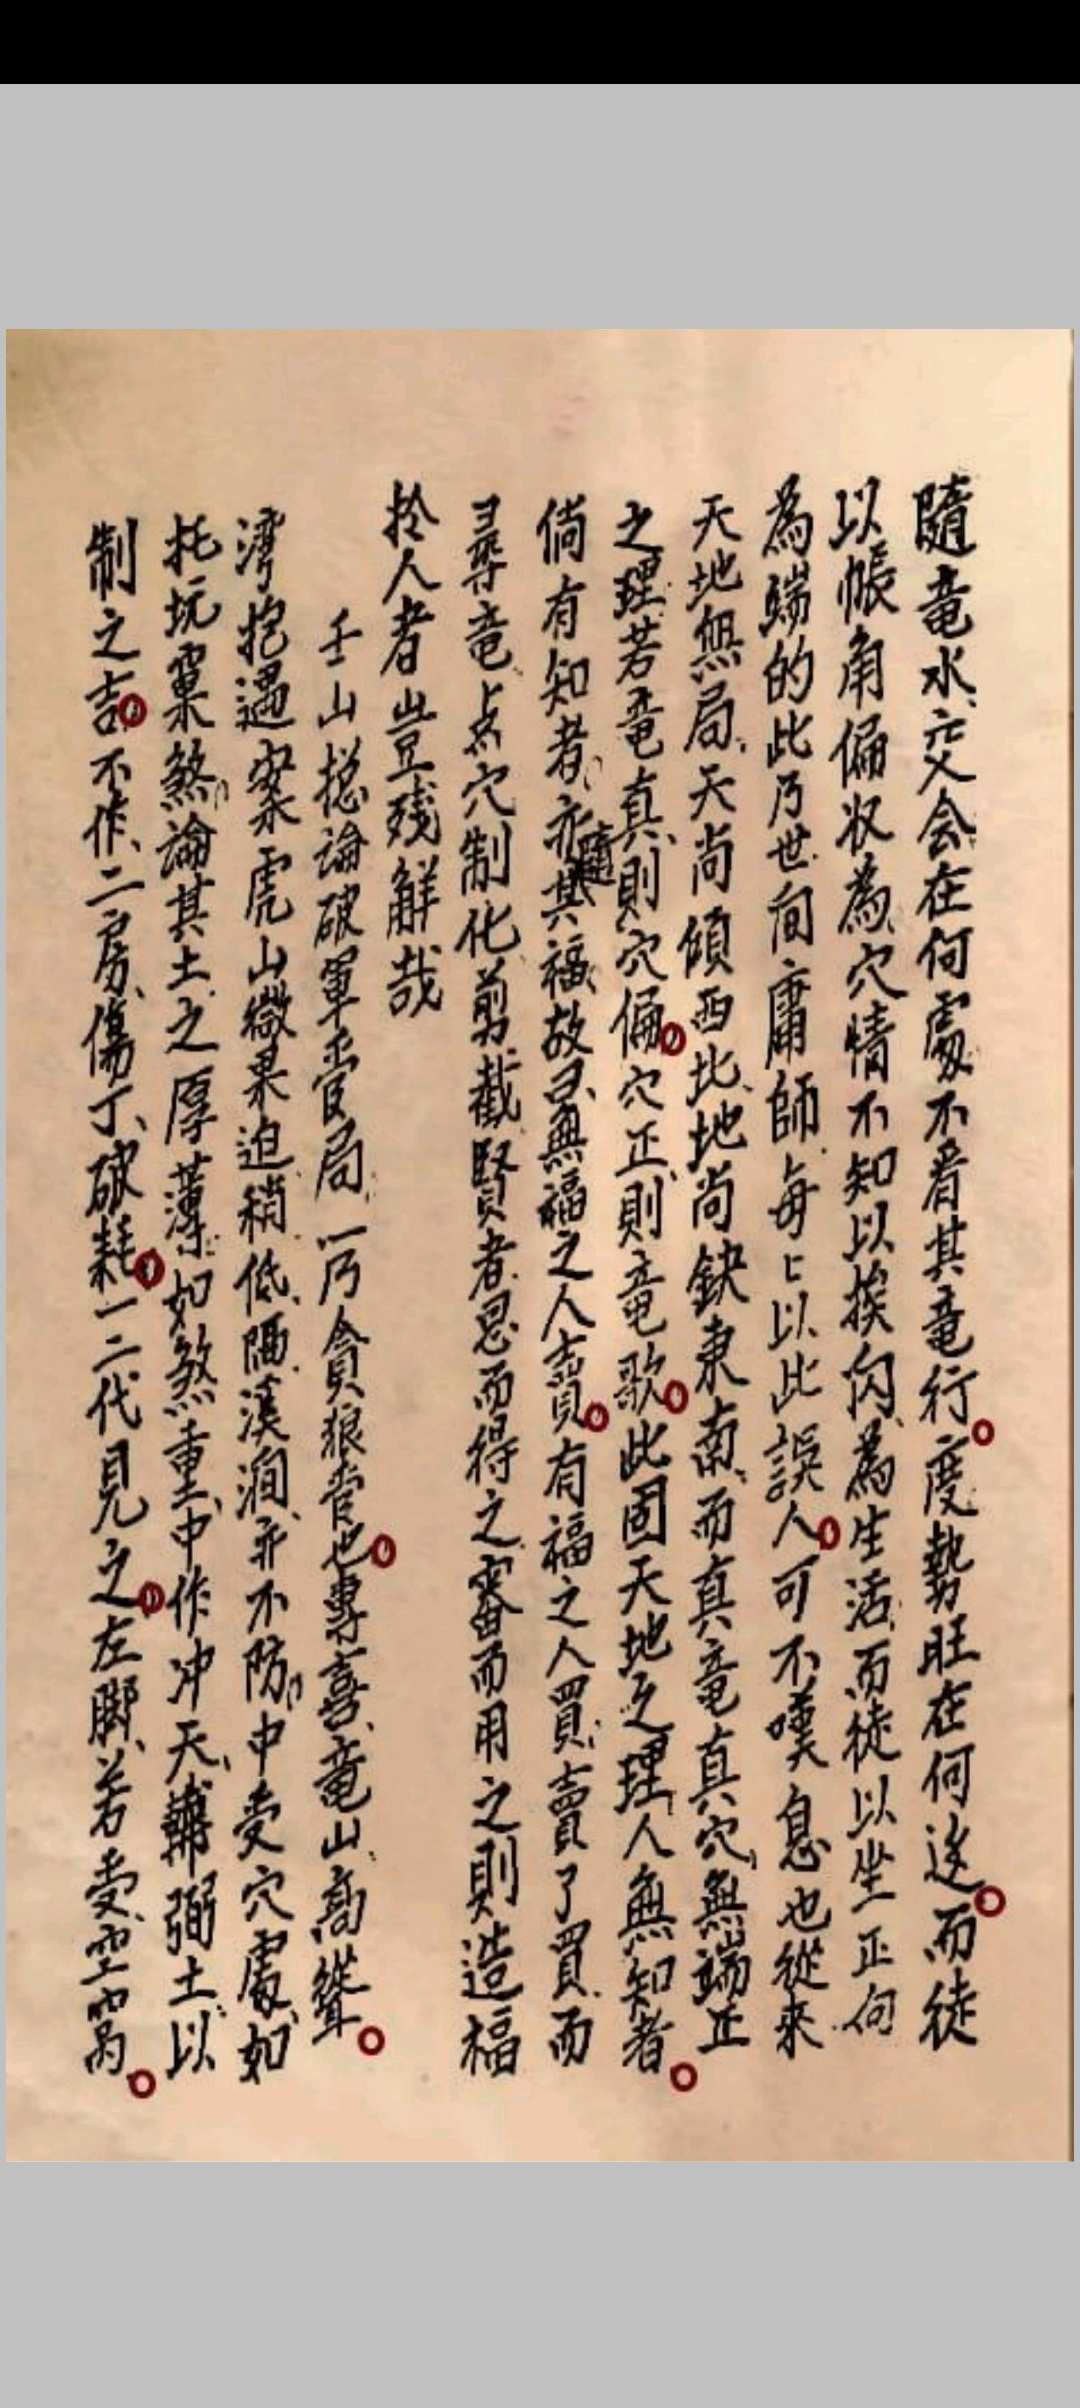 隨竜水交会在何處不看其竜行度勢旺在何邊而徒
以帳角偏收為穴情不知以挨闪為生活而徒以坐正向
為端的此乃世间庸師每々以此誤人可不嘆息也從來
天地無局天尚傾西北地尚缺東南而真竜真穴無端正
之理若竜真則穴偏穴正則竜歌此固天地之理人無知者
倘有知者亦隨其福故曰無福之人賣有福之人買賣了買而
尋竜点穴制化剪截賢者思而得之審而用之則造福
於人者豈残鮮哉
壬山捴論破軍管局一乃貪狼管也專喜竜山高聳
湾抱遇案虎山微果迫稍低隔溪澗亦不防中受穴處如
托坑窠煞論其土之厚薄如煞重中作冲天輔弼土以
制之吉不作二房傷丁破耗一二代見之左脚若受空窝